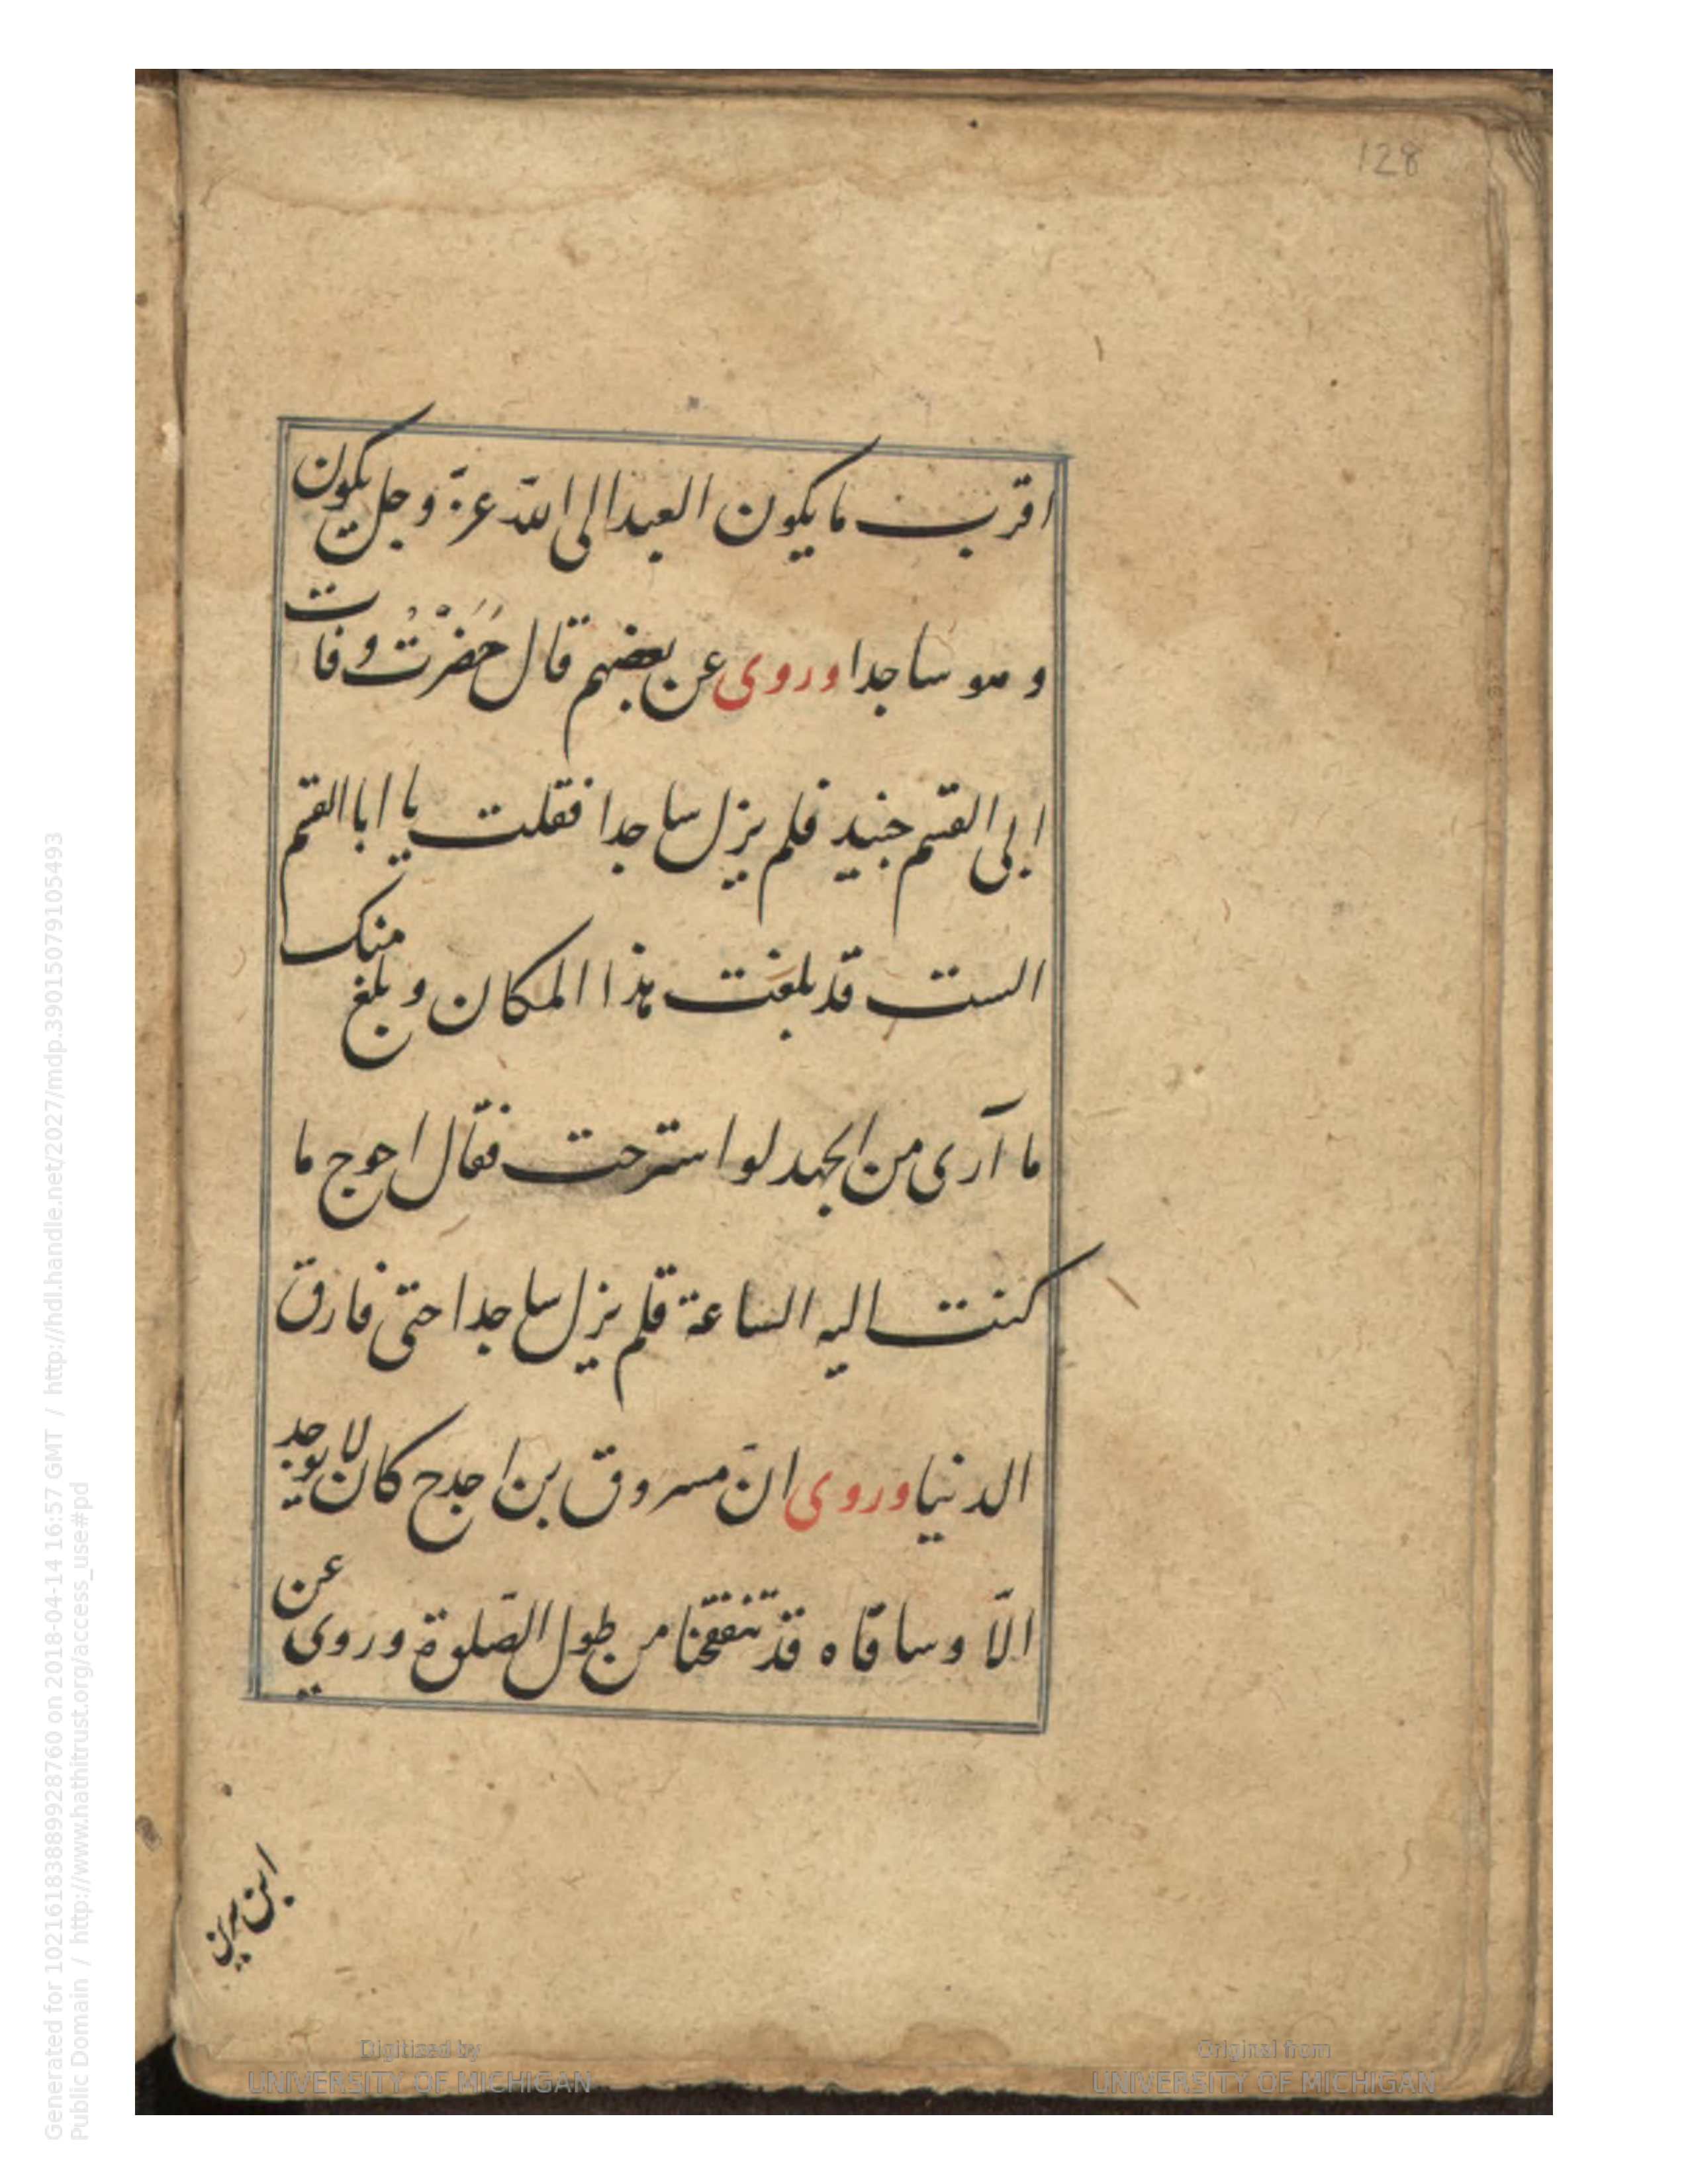 128
اقرب ما يكون العبد الى الله عزّ وجل يكون
و هو ساجدا وروى عن بعضهم قال حَضَرْتُ وفات
ابى القسم جنيد فلم يزل ساجدا فقلت يا ابا القسم
الست قد بلغت هذا المكان و بلغ منك
ما آرى من الجهد لو استرحت فقال احوج ما
كنت اليه الساعة فلم يزل ساجدا حتى فارق
الدنيا وروى انّ مسروق بن اجدح كان لا يوجد
الّا وساقاه قد تنفقختا من طول الصّلوة وروي عن
ابن سيرين
Digitized by
UNIVERSITY OF MICHIGAN
Original from
UNIVERSITY OF MICHIGAN
Generated for 102161838899928760 on 2018-04-14 16:57 GMT / http://hdl.handle.net/2027/mdp.39015079105493
Public Domain / http://www.hathitrust.org/access_use#pd